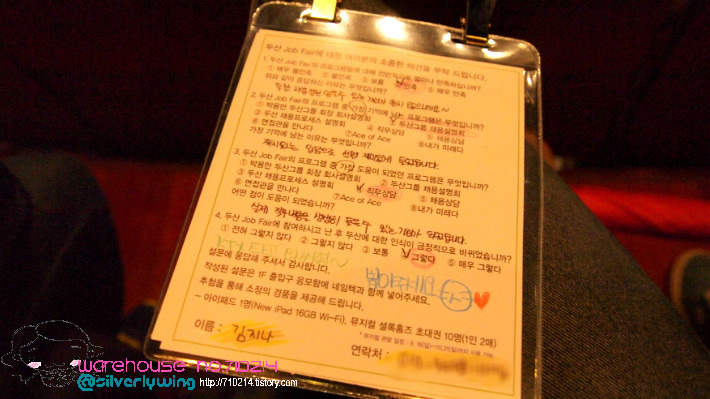 두산 Job Fair에 대한 여러분의 소중한 의견을 부탁 드립니다.
1. 두산 Job Fair의 프로그램들에 대해 전반적으로 얼마나 만족하십니까?
① 매우 불만족 ② 불만족 ③ 보통 ④ 만족 ⑤ 매우 만족
위와 같이 응답하신 이유는 무엇입니까?
2. 두산 Job Fair의 프로그램 중 가장 기억에 남는 프로그램은 무엇입니까?
① 박용만 두산그룹 회장 회사설명회 ② 두산그룹 채용설명회
③ 두산 채용프로세스 설명회 ④ 직무상담 ⑤ 채용상담
⑥ 면접관을 만나다 ⑦ Ace of Ace ⑧ 내가 미래다
가장 기억에 남는 이유는 무엇입니까?
재치있는 입담으로 설명 재미있게 들었습니다.
3. 두산 Job Fair의 프로그램 중 가장 도움이 되었던 프로그램은 무엇입니까?
① 박용만 두산그룹 회장 회사설명회 ② 두산그룹 채용설명회
③ 두산 채용프로세스 설명회 ④ 직무상담 ⑤ 채용상담
⑥ 면접관을 만나다 ⑦ Ace of Ace ⑧ 내가 미래다
어떤 점이 도움이 되었습니까?
4. 두산 Job Fair에 참여하시고 난 후 두산에 대한 인식이 긍정적으로 바뀌었습니까?
① 전혀 그렇지 않다 ② 그렇지 않다 ③ 보통 ④ 그렇다 ⑤ 매우 그렇다
설문에 응답해 주셔서 감사합니다.
뽑아주세요 두산♥
작성된 설문은 1F 출입구 응모함에 네임텍과 함께 넣어주세요.
추첨을 통해 소정의 경품을 제공해 드립니다.
- 아이패드 1명(New iPad 16GB Wi-Fi), 뮤지컬 셜록홈즈 초대권 10명(1인 2매)
이름 : 김지나
연락처 :
warehouse no.710214
@silverlywing http://710214.tistory.com